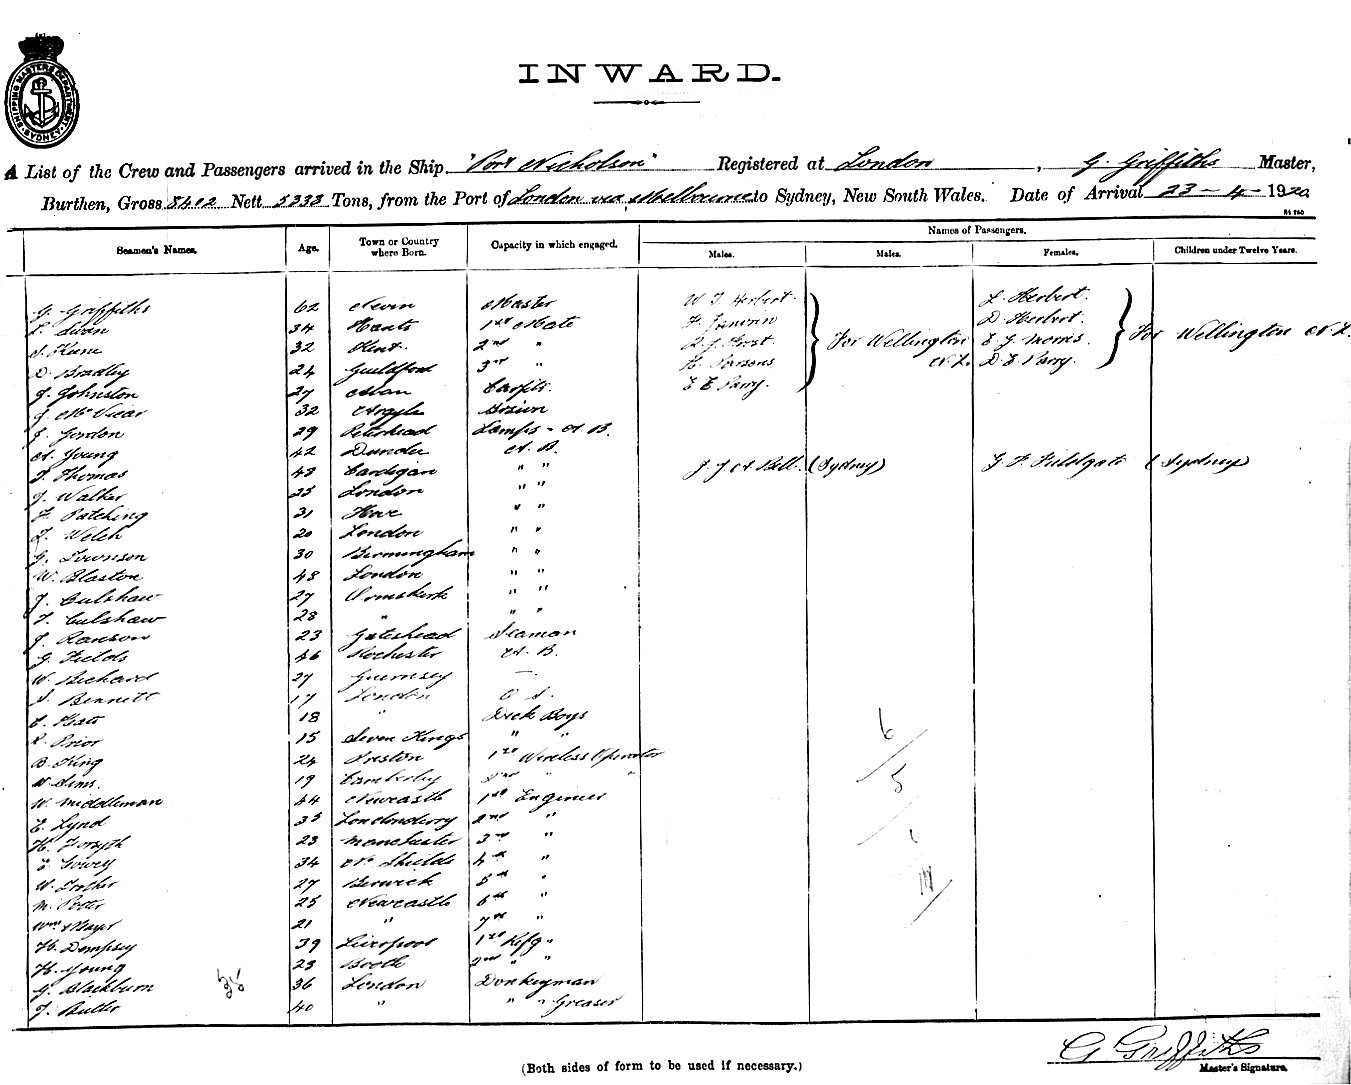 SHIPPING MASTER'S DEPARTMENT. SYDNEY
INWARD.
A List of the Crew and Passengers arrived in the Ship "Port Nicholson" Registered at London, G. Griffiths Master,
Burthen, Gross 8402 Nett 5333 Tons, from the Port of London via Melbourne to Sydney, New South Wales. Date of Arrival 23-4-1920
Seamen's Names. Age. Town or Country where Born. Capacity in which engaged. Names of Passengers.
Males. Males. Females. Children under Twelve Years.
G. Griffiths 62 Nevin Master W. J. Herbert L. Herbert
34 Hants 1st Mate D. Herbert
S. Kane 32 Kent 2nd " For Wellington N.Z. E. J. Morris For Wellington N.Z.
D. Bradley 24 Guildford 3rd " H. Parsons D. E. Parry
J. Johnston 27 Alan Carptr. E E Parry
J. McVicar 32 Argyle Bosun
J. Gordon 29 Peterhead Lamps - A B.
A. Young 42 Dundee A. B.
Thomas 43 Cardigan " " J. J. A Bell (Sydney) G. F. Fieldgate (Sydney)
J. Walker 25 London " "
F. Patching 31 Hove " "
Welch 20 London " "
G. Townson 30 Birmingham " "
W. Blaston 48 London " "
J. Culshaw 27 Ormskirk " "
T. Culshaw 28 " " "
J. Ranson 23 Gateshead Seaman
G. Fields 46 Rochester A. B.
W. Bichard 27 Guernsey —
S. Bennett 17 London O S.
18 " Deck Boys
R. Prior 15 Seven Kings " "
B. King 24 Preston 1st Wireless Operator
W. Sims 19 Camberley 2nd " "
W. Middleman 44 Newcastle 1st Engineer
E. Lynd 35 Londonderry 2nd "
H. Forsyth 23 Manchester 3rd "
E Gowey 34 No Shields 4th "
W. Trother 27 Berwick 5th "
M. Potts 25 Newcastle 6th "
Wm Mayer 21 " 7th "
H. Dempsey 39 Liverpool 1st Refg "
H. Young 23 Booth 2nd " "
G. Blackburn 36 London Donkeyman
J. Butler 40 " " " Greaser
G Griffiths
(Both sides of form to be used if necessary.)
Master's Signature.